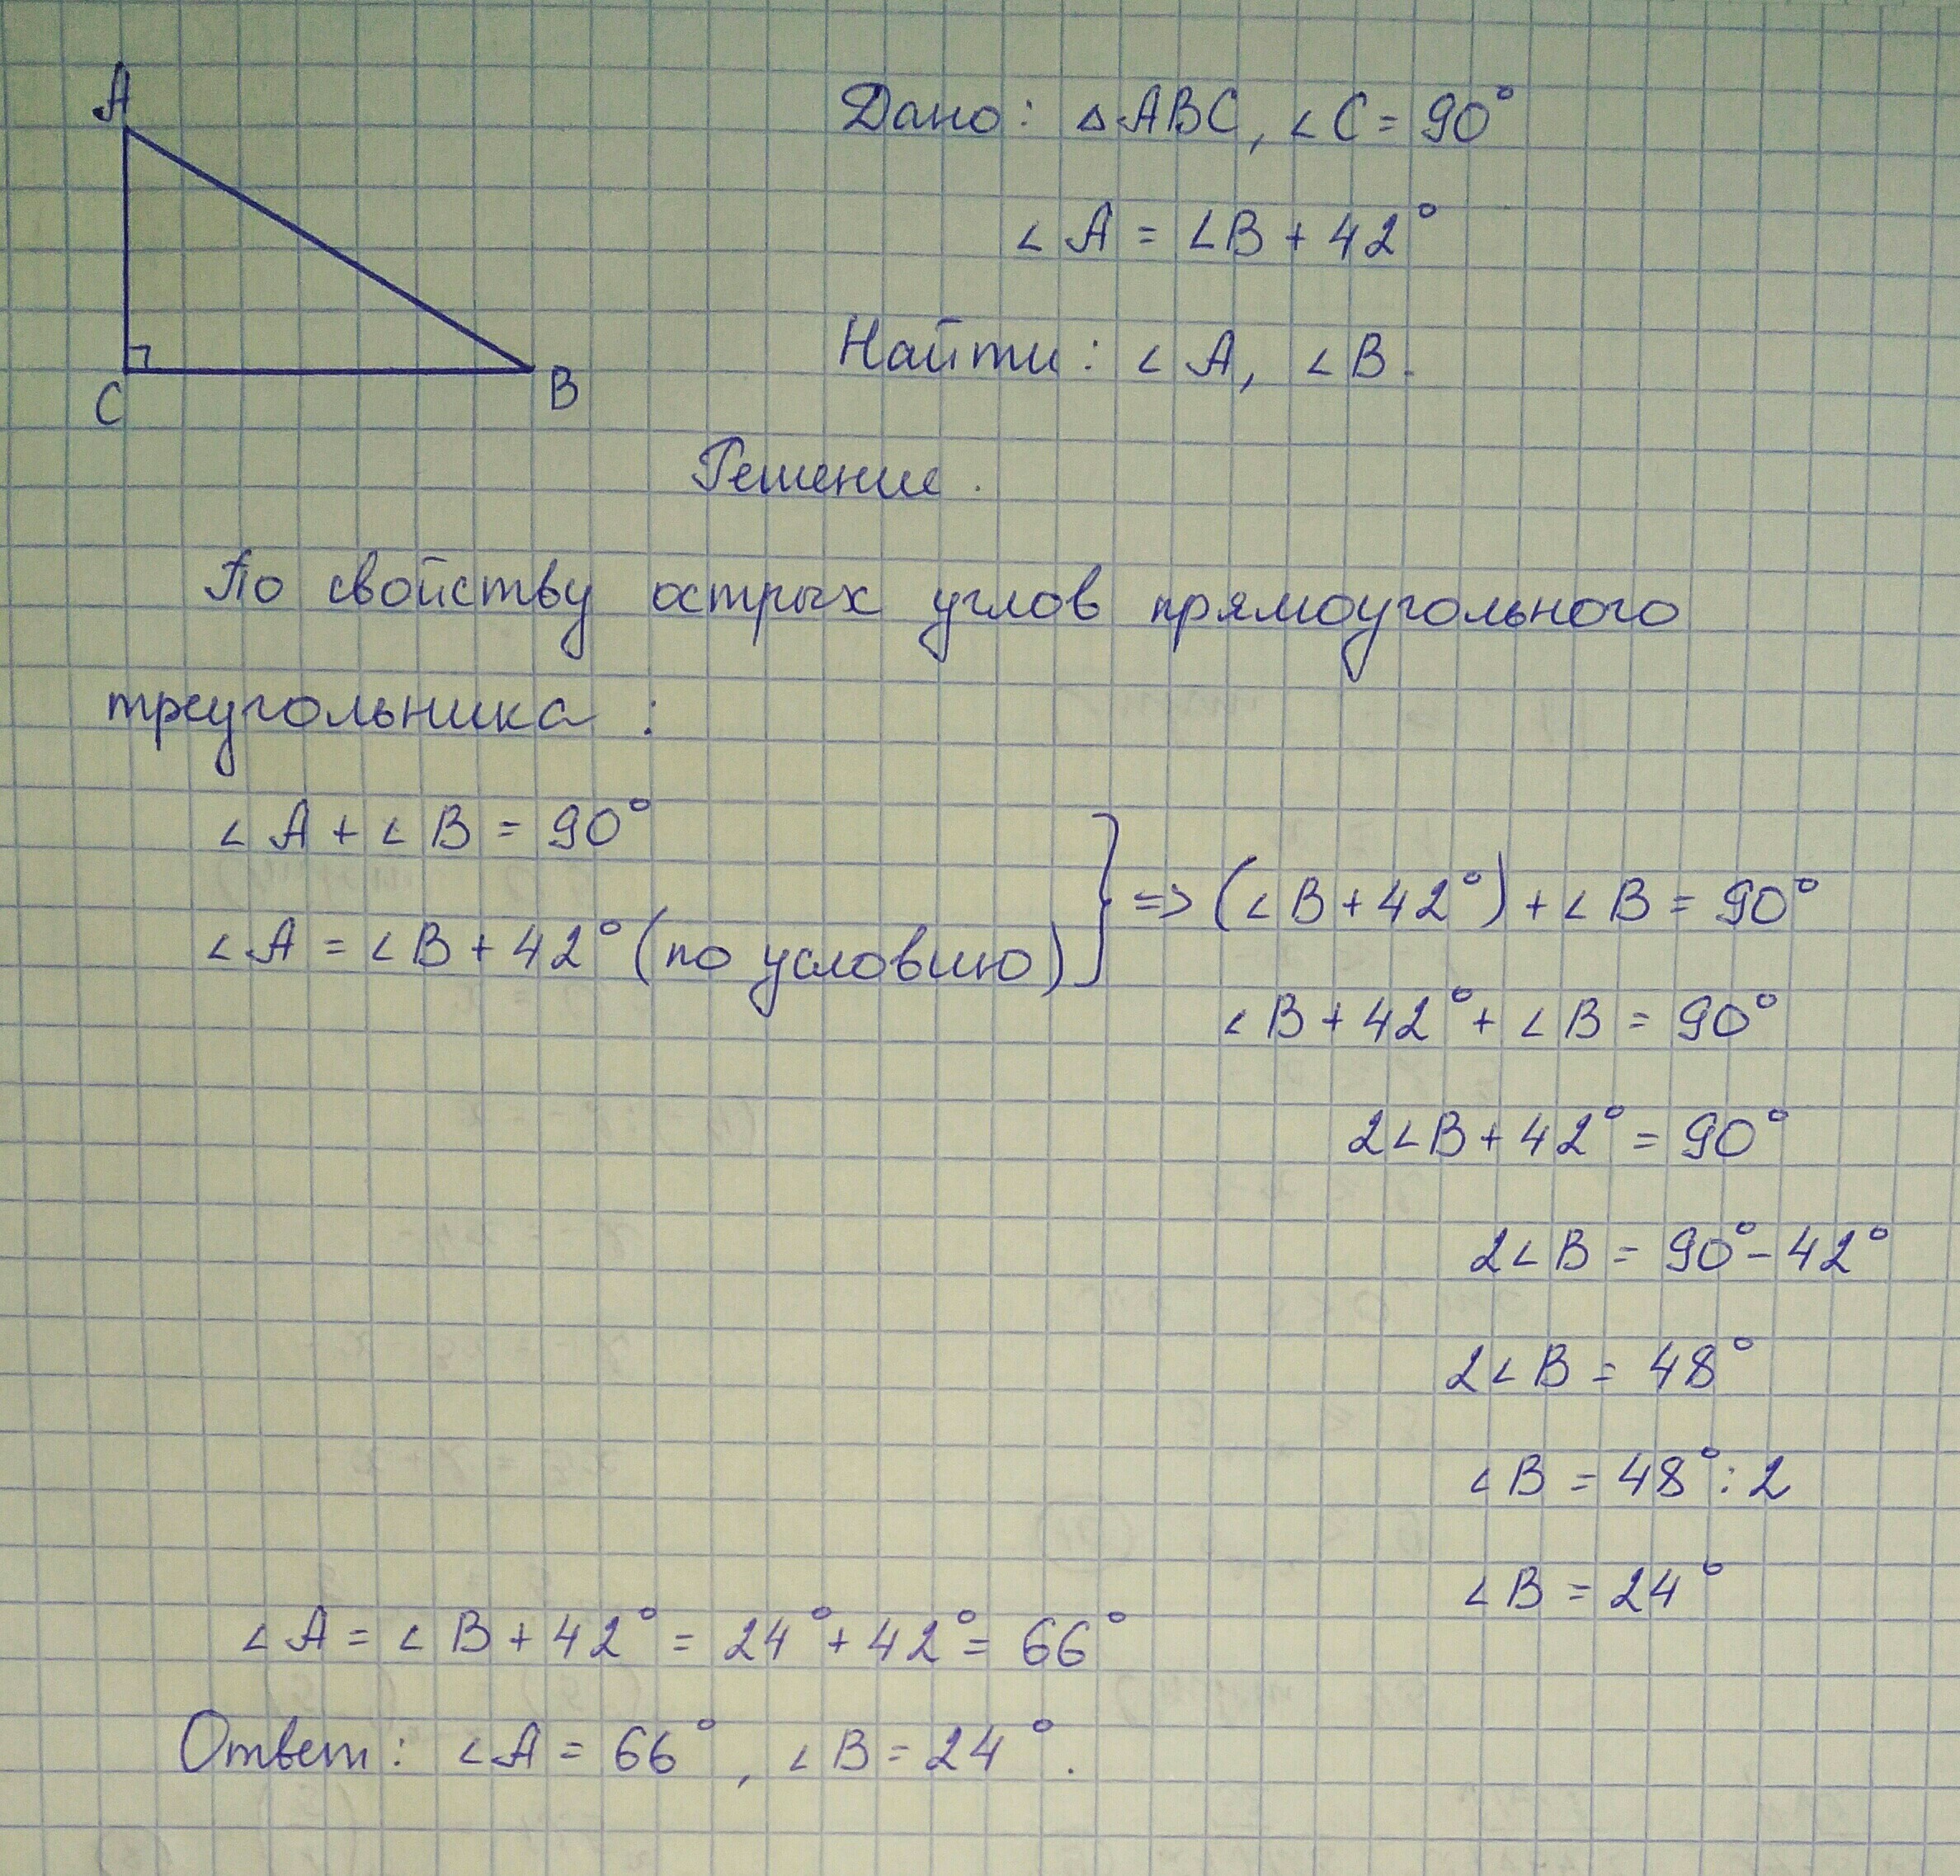 A
C
B
Дано: △ABC, ∠C = 90°
∠A = ∠B + 42°
Найти: ∠A, ∠B.
Решение.
По свойству острых углов прямоугольного
треугольника:
∠A + ∠B = 90°
∠A = ∠B + 42° (по условию)
} => (∠B + 42°) + ∠B = 90°
∠B + 42° + ∠B = 90°
2∠B + 42° = 90°
2∠B = 90° - 42°
2∠B = 48°
∠B = 48° : 2
∠B = 24°
∠A = ∠B + 42° = 24° + 42° = 66°
Ответ: ∠A = 66°, ∠B = 24°.